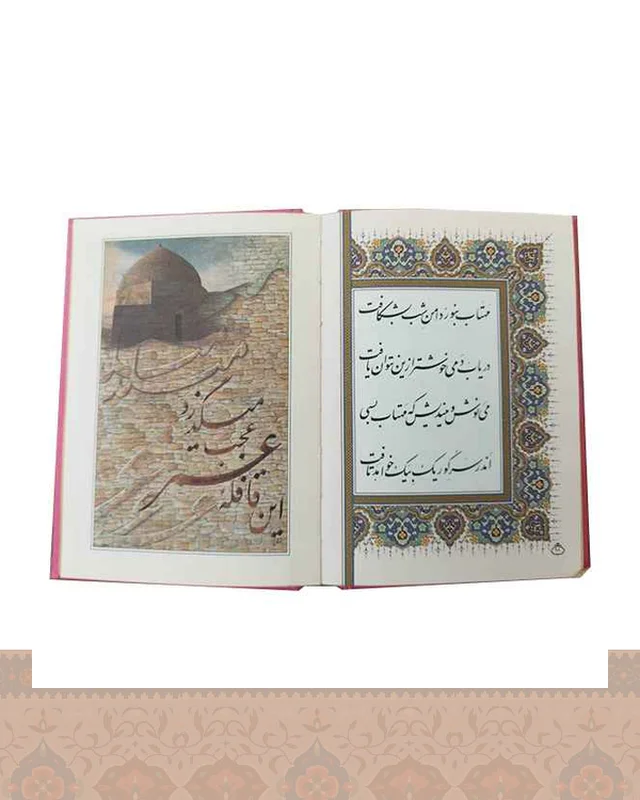 مهتاب بنور دامن شب بشکافت
دریاب دمی خوشتر ازین نتوان یافت
می نوش و میندیش که مهتاب بسی
اندر سر گور یک بیک خواهد تافت
این قافله
عمر
عجب
میگذرد